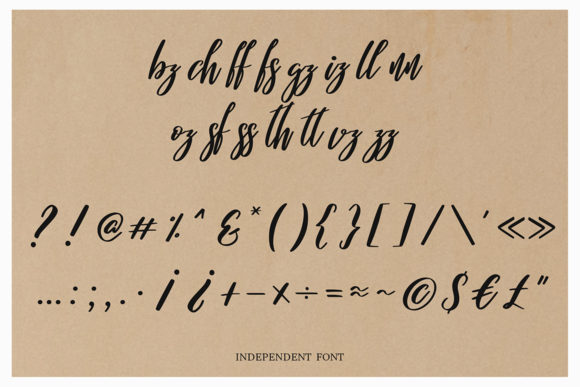 bz ch ff fs gz iz ll nn
oz sf ss th tt vz zz
? ! @ # % ^ & * ( ) { } [ ] / \ ' « »
… : ; , . · ¡ ¿ + – × ÷ = ≈ ~ © $ € £ "
INDEPENDENT FONT